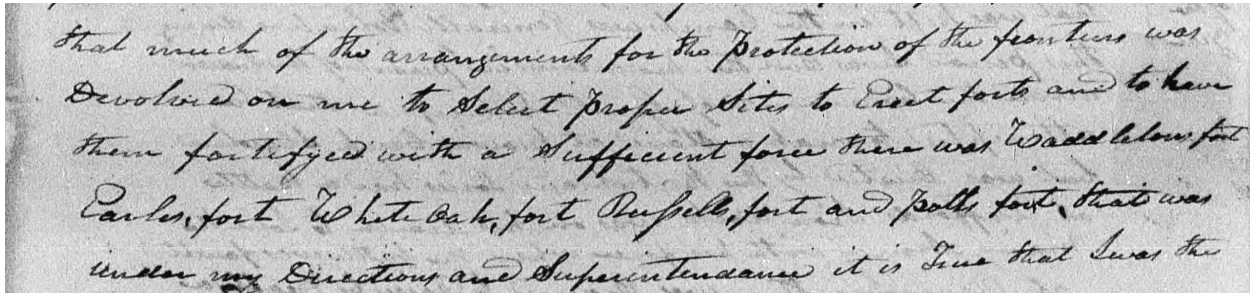 that much of the arrangements for the Protection of the frontiers was
Devolved on me to Select Proper Sites to Erect forts and to have
them fortifyed with a Sufficient force there was Waddletons fort
Earles, fort White Oak, fort Russells, fort and Potts fort, that was
under my Directions and Superintendance it is True that I was the